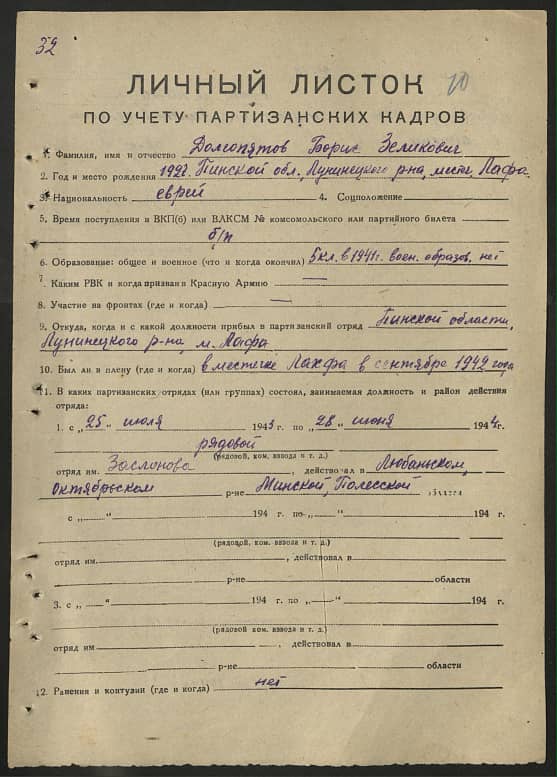 32
10
ЛИЧНЫЙ ЛИСТОК
ПО УЧЕТУ ПАРТИЗАНСКИХ КАДРОВ
1. Фамилия, имя и отчество Долгопятов Борис Зеликович
2. Год и место рождения 1928. Пинской обл., Лунинецкого р-на, мест. Лафа.
3. Национальность еврей 4. Соцположение
5. Время поступления в ВКП(б) или ВЛКСМ № комсомольского или партийного билета
б/п
6. Образование: общее и военное (что и когда окончил) 5 кл. в 1941г. воен. образов. нет
7. Каким РВК и когда призван в Красную Армию —
8. Участие на фронтах (где и когда) —
9. Откуда, когда и с какой должности прибыл в партизанский отряд Пинской области,
Лунинецкого р-на, м. Лафа
10. Был ли в плену (где и когда) в местечке Лахфа в сентябре 1942 года
11. В каких партизанских отрядах (или группах) состоял, занимаемая должность и район действия
отряда:
1. с „25“ июля 1943 г. по „28“ июня 1944г.
рядовой
(рядовой, ком. взвода и т. д.)
отряд им. Заслонова, действовал в Любаньском,
октябрьском р-не Минской, Полесской области
с „ “ 194 г. по „ “ 194 г.
(рядовой, ком. взвода и т. д.)
отряд им. , действовал в
р-не области
3. с „ “ 194 г. по „ “ 194 г.
(рядовой ком. взвода и т. д.)
отряд им , действовал в
р-не области
12. Ранения и контузии (где и когда) нет